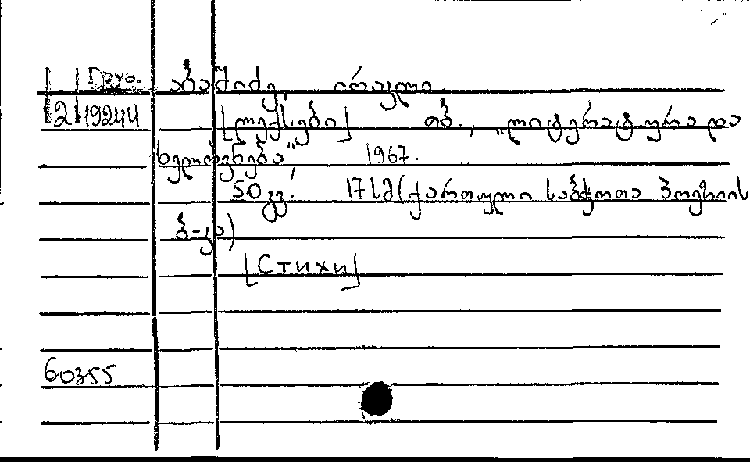 Груз. აბაშიძე, ირაკლი
2 19244 [ლექსები] თბ., „ლიტერატურა და
ხელოვნება“, 1967.
50 გვ. 17 სმ (ქართული საბჭოთა პოეზიის
ბ-კა)
[Стихи]
60355